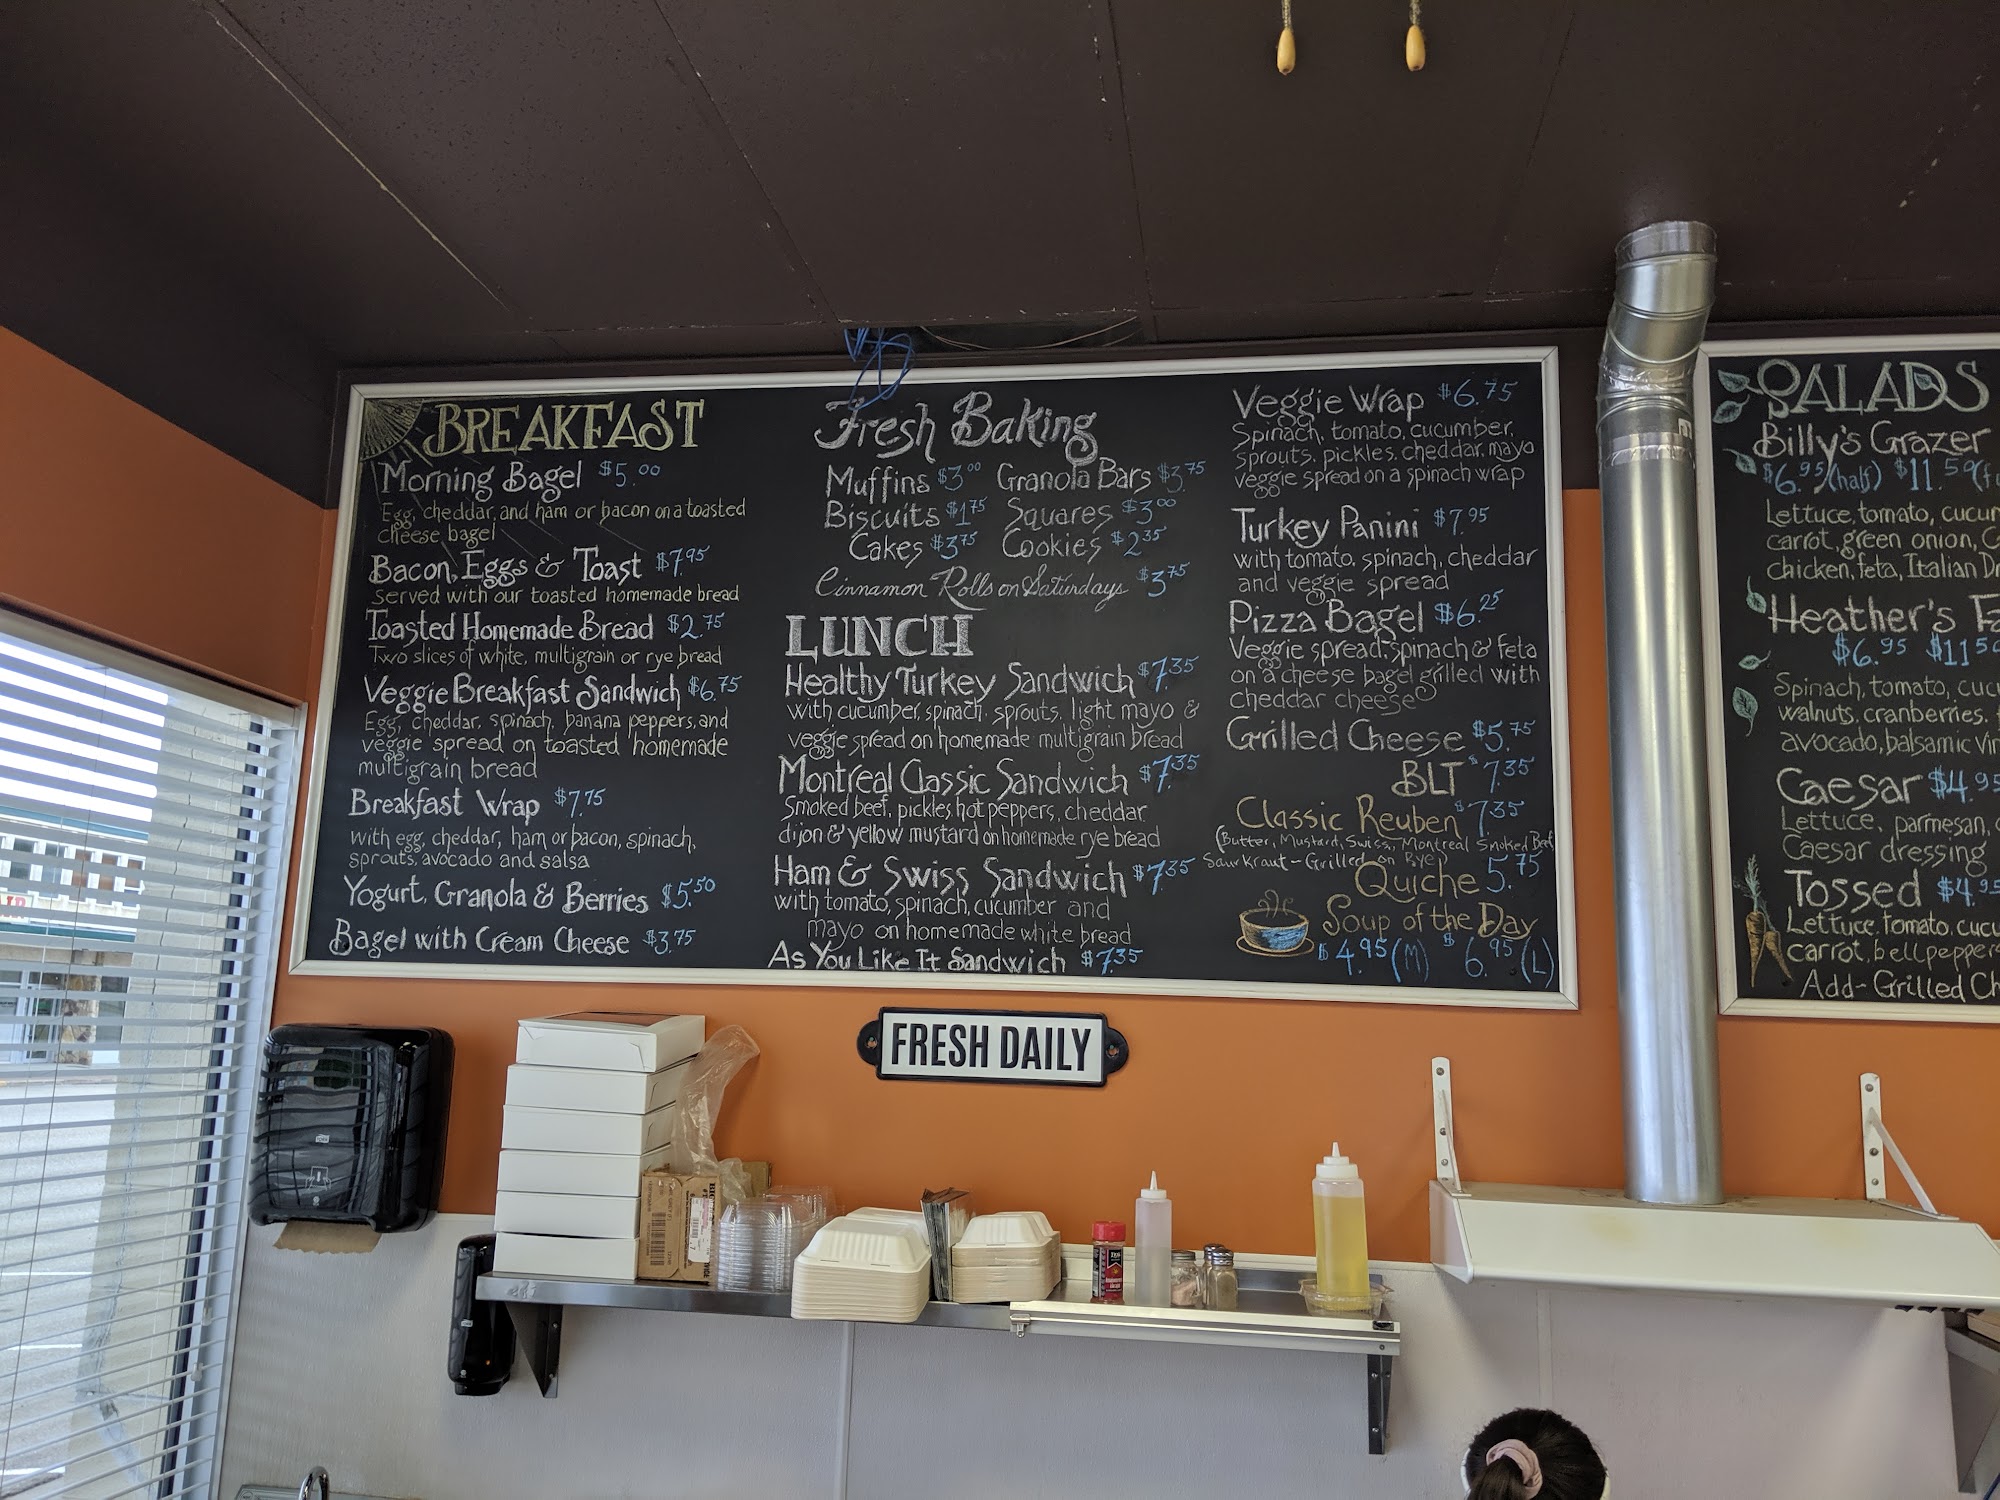 BREAKFAST
Morning Bagel $5.00
Egg, cheddar, and ham or bacon on a toasted
cheese bagel
Bacon, Eggs & Toast $7.95
served with our toasted homemade bread
Toasted Homemade Bread $2.75
Two slices of white, multigrain or rye bread
Veggie Breakfast Sandwich $6.75
Egg, cheddar, spinach, banana peppers, and
veggie spread on toasted homemade
multigrain bread
Breakfast Wrap $7.75
with egg, cheddar, ham or bacon, spinach,
sprouts, avocado and salsa
Yogurt, Granola & Berries $5.50
Bagel with Cream Cheese $3.75
Fresh Baking
Muffins $3.00 Granola Bars $3.75
Biscuits $1.75 Squares $3.00
Cakes $3.75 Cookies $2.35
Cinnamon Rolls on Saturdays $3.75
LUNCH
Healthy Turkey Sandwich $7.35
with cucumber, spinach, sprouts, light mayo &
veggie spread on homemade multigrain bread
Montreal Classic Sandwich $7.35
Smoked beef, pickles, hot peppers, cheddar
dijon & yellow mustard on homemade rye bread
Ham & Swiss Sandwich $7.35
with tomato, spinach, cucumber and
mayo on homemade white bread
As You Like It Sandwich $7.35
Veggie Wrap $6.75
Spinach, tomato, cucumber,
sprouts, pickles, cheddar, mayo
veggie spread on a spinach wrap
Turkey Panini $7.95
with tomato, spinach, cheddar
and veggie spread
Pizza Bagel $6.25
Veggie spread, spinach & feta
on a cheese bagel grilled with
cheddar cheese
Grilled Cheese $5.75
BLT $7.35
Classic Reuben $7.35
(Butter, Mustard, Swiss, Montreal Smoked Beef
Saurkraut - Grilled on Rye)
Quiche 5.75
Soup of the Day
$4.95 (M) $6.95 (L)
SALADS
Billy's Grazer
$6.95 (half) $11.50
Lettuce, tomato,
carrot, green onion,
chicken, feta, Italian
Heather's
$6.95 $11.50
Spinach, tomato,
walnuts, cranberries,
avocado, balsamic
Caesar $4.95
Lettuce, parmesan,
Caesar dressing
Tossed $4.95
Lettuce, tomato,
carrot, bell pepper
Add - Grilled
FRESH DAILY